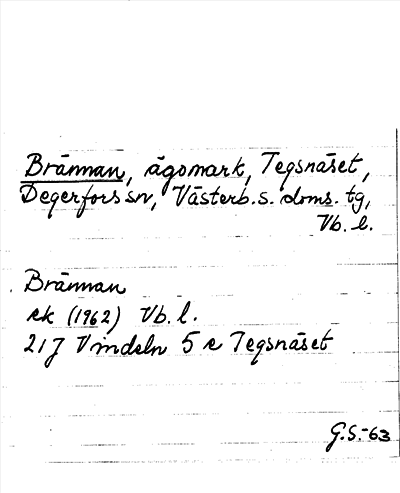 Brännan, ägomark, Tegsnäset,
Degerfors sn, Västerb. s. doms. tg,
Vb. l.
Brännan
ek (1962) Vb. l.
21J Vindeln 5 e Tegsnäset
G.S.-63